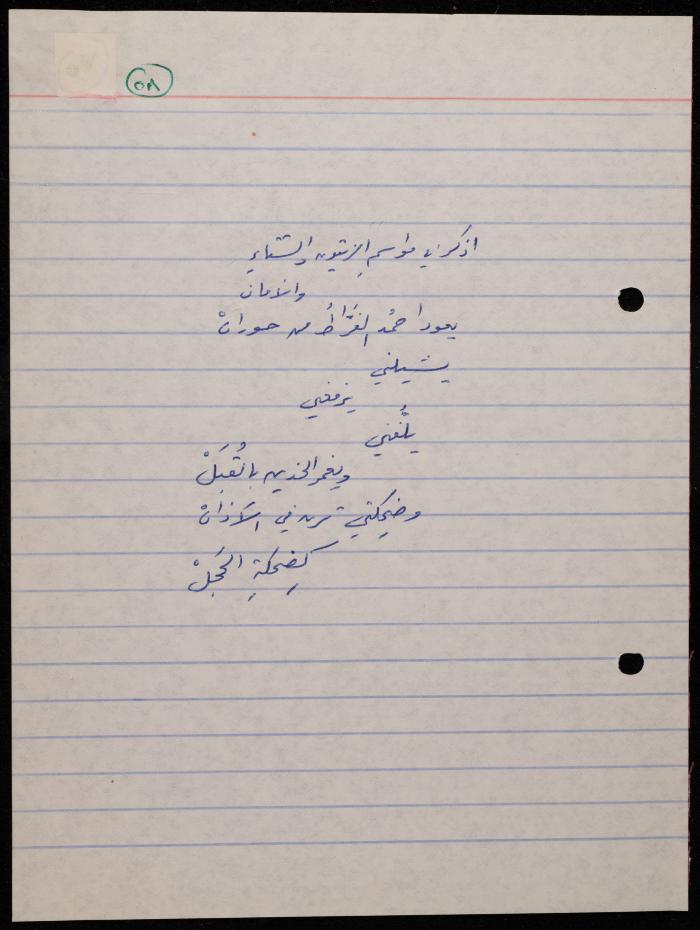 ٥٨
اذكر في مواسم الزيتون والشتاءِ
والأمان
يعود احمُد الغَرّاطُ من حورانْ
يشيلني
يرفعني
يلُفّني
ويغمر الخدين بالقُبَلْ
وضحكتي ترن في الآذانْ
كضحكةِ الحَجَلْ